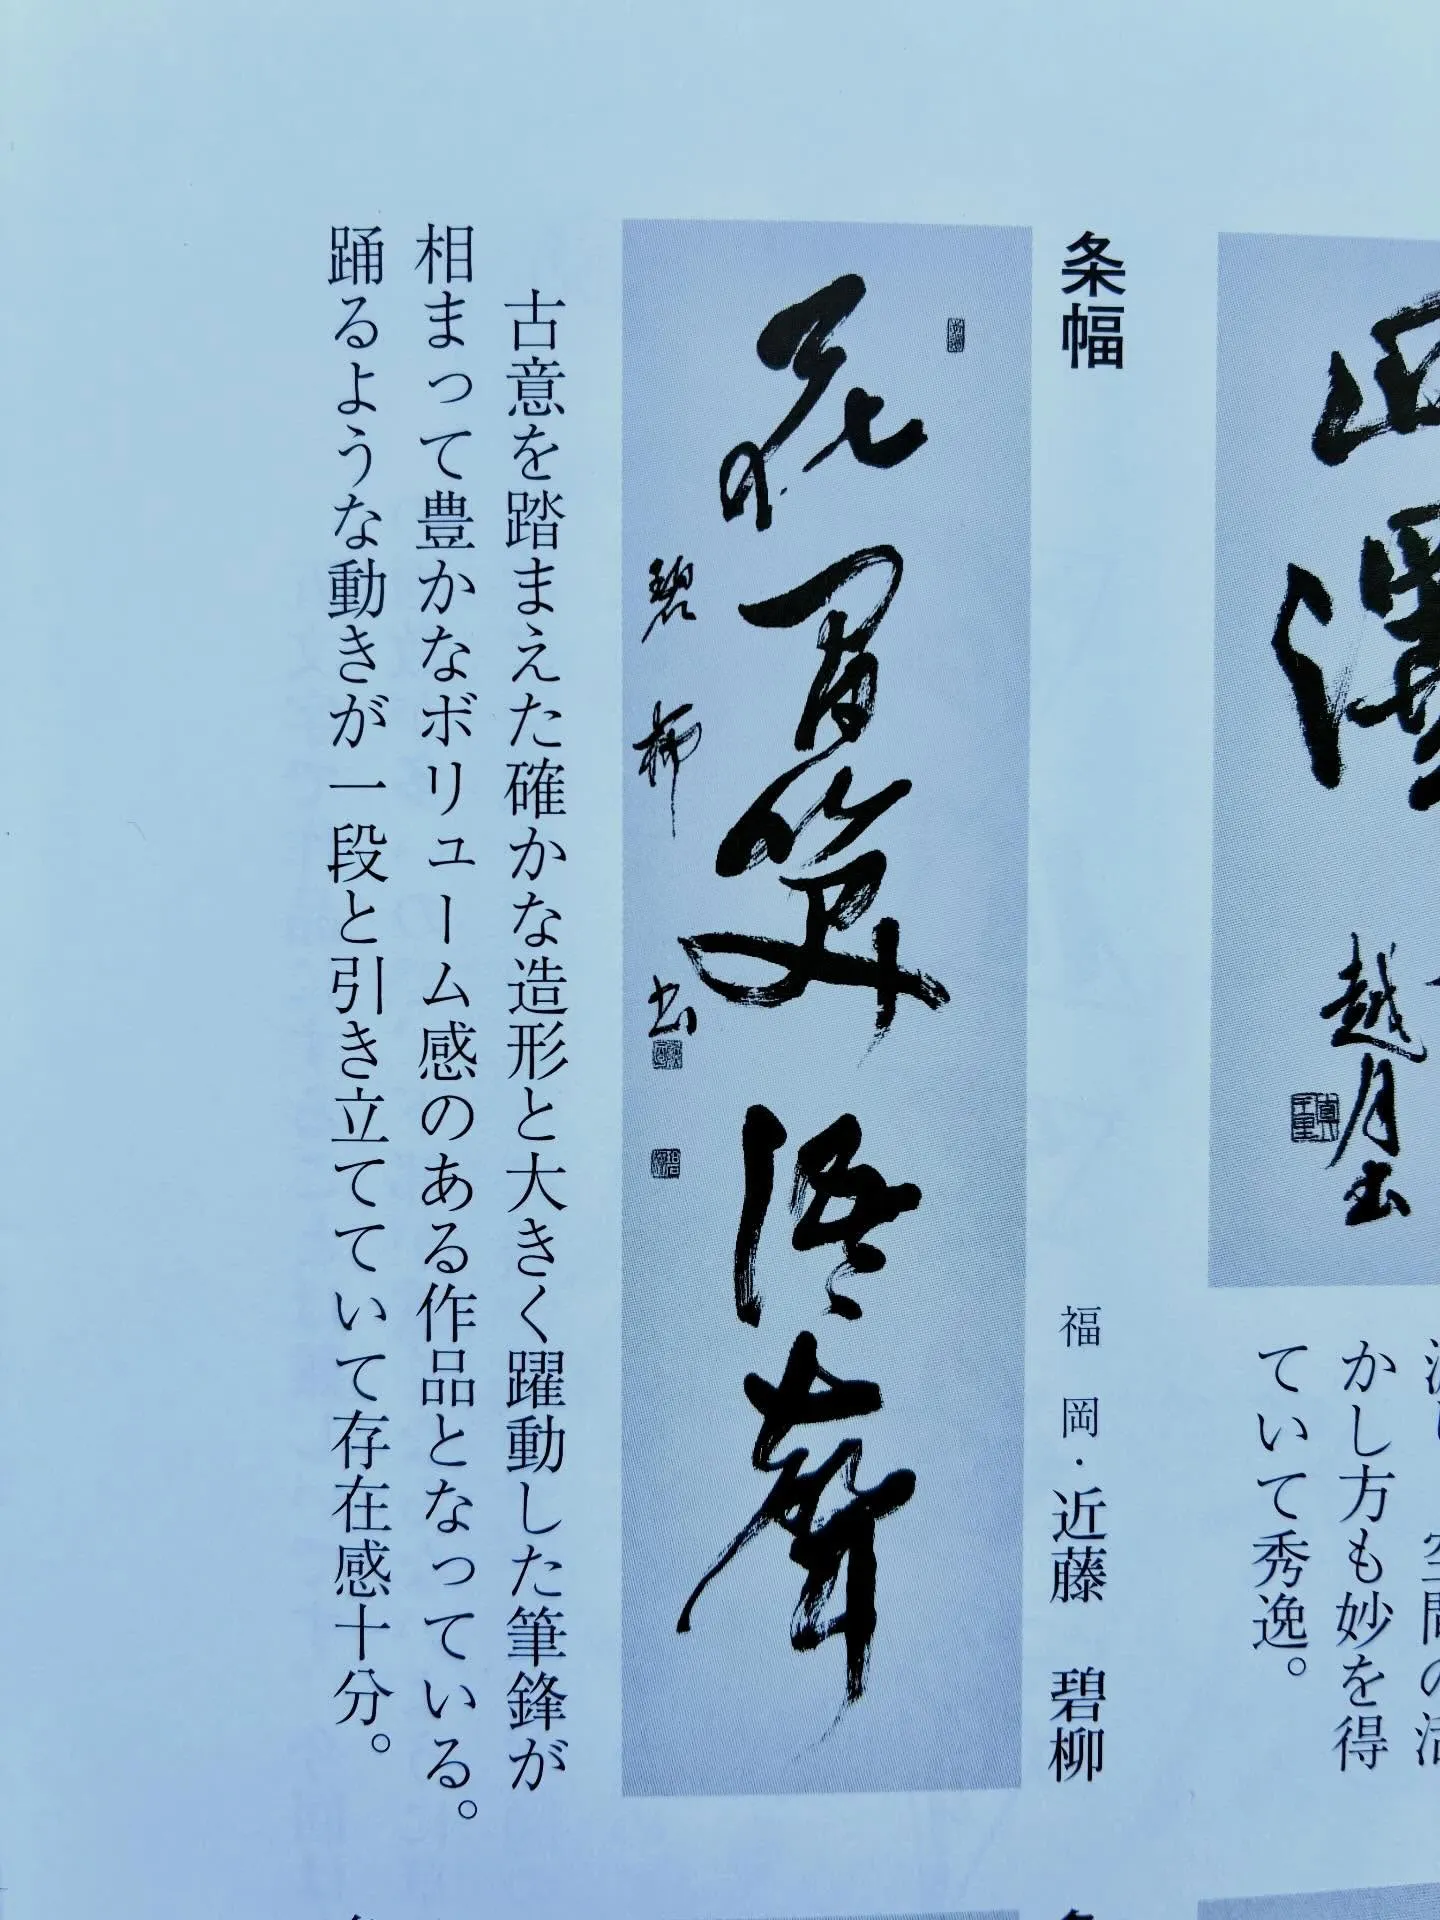 越月書
渡し、空間の活
かし方も妙を得
ていて秀逸。
条幅
福岡・近藤 碧柳
花間笑語聲
碧柳書
古意を踏まえた確かな造形と大きく躍動した筆鋒が
相まって豊かなボリューム感のある作品となっている。
踊るような動きが一段と引き立てていて存在感十分。